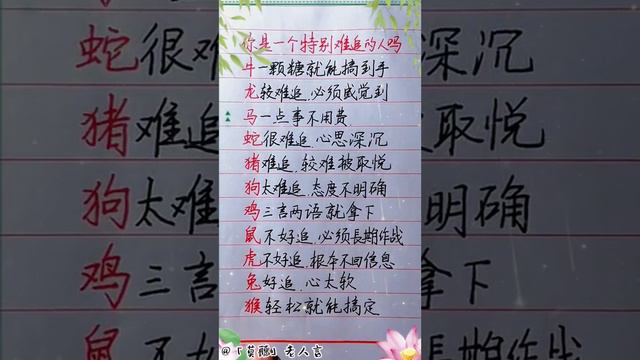 你是一个特别难追的人吗
牛一颗糖就能搞到手
龙较难追.必须感觉到
马一点事不用费
蛇很难追.心思深沉
猪难追.较难被取悦
狗太难追.态度不明确
鸡三言两语就拿下
鼠不好追.必须長期作战
虎不好追.根本不回信息
兔好追.心太软
猴轻松就能搞定
@ 老人言